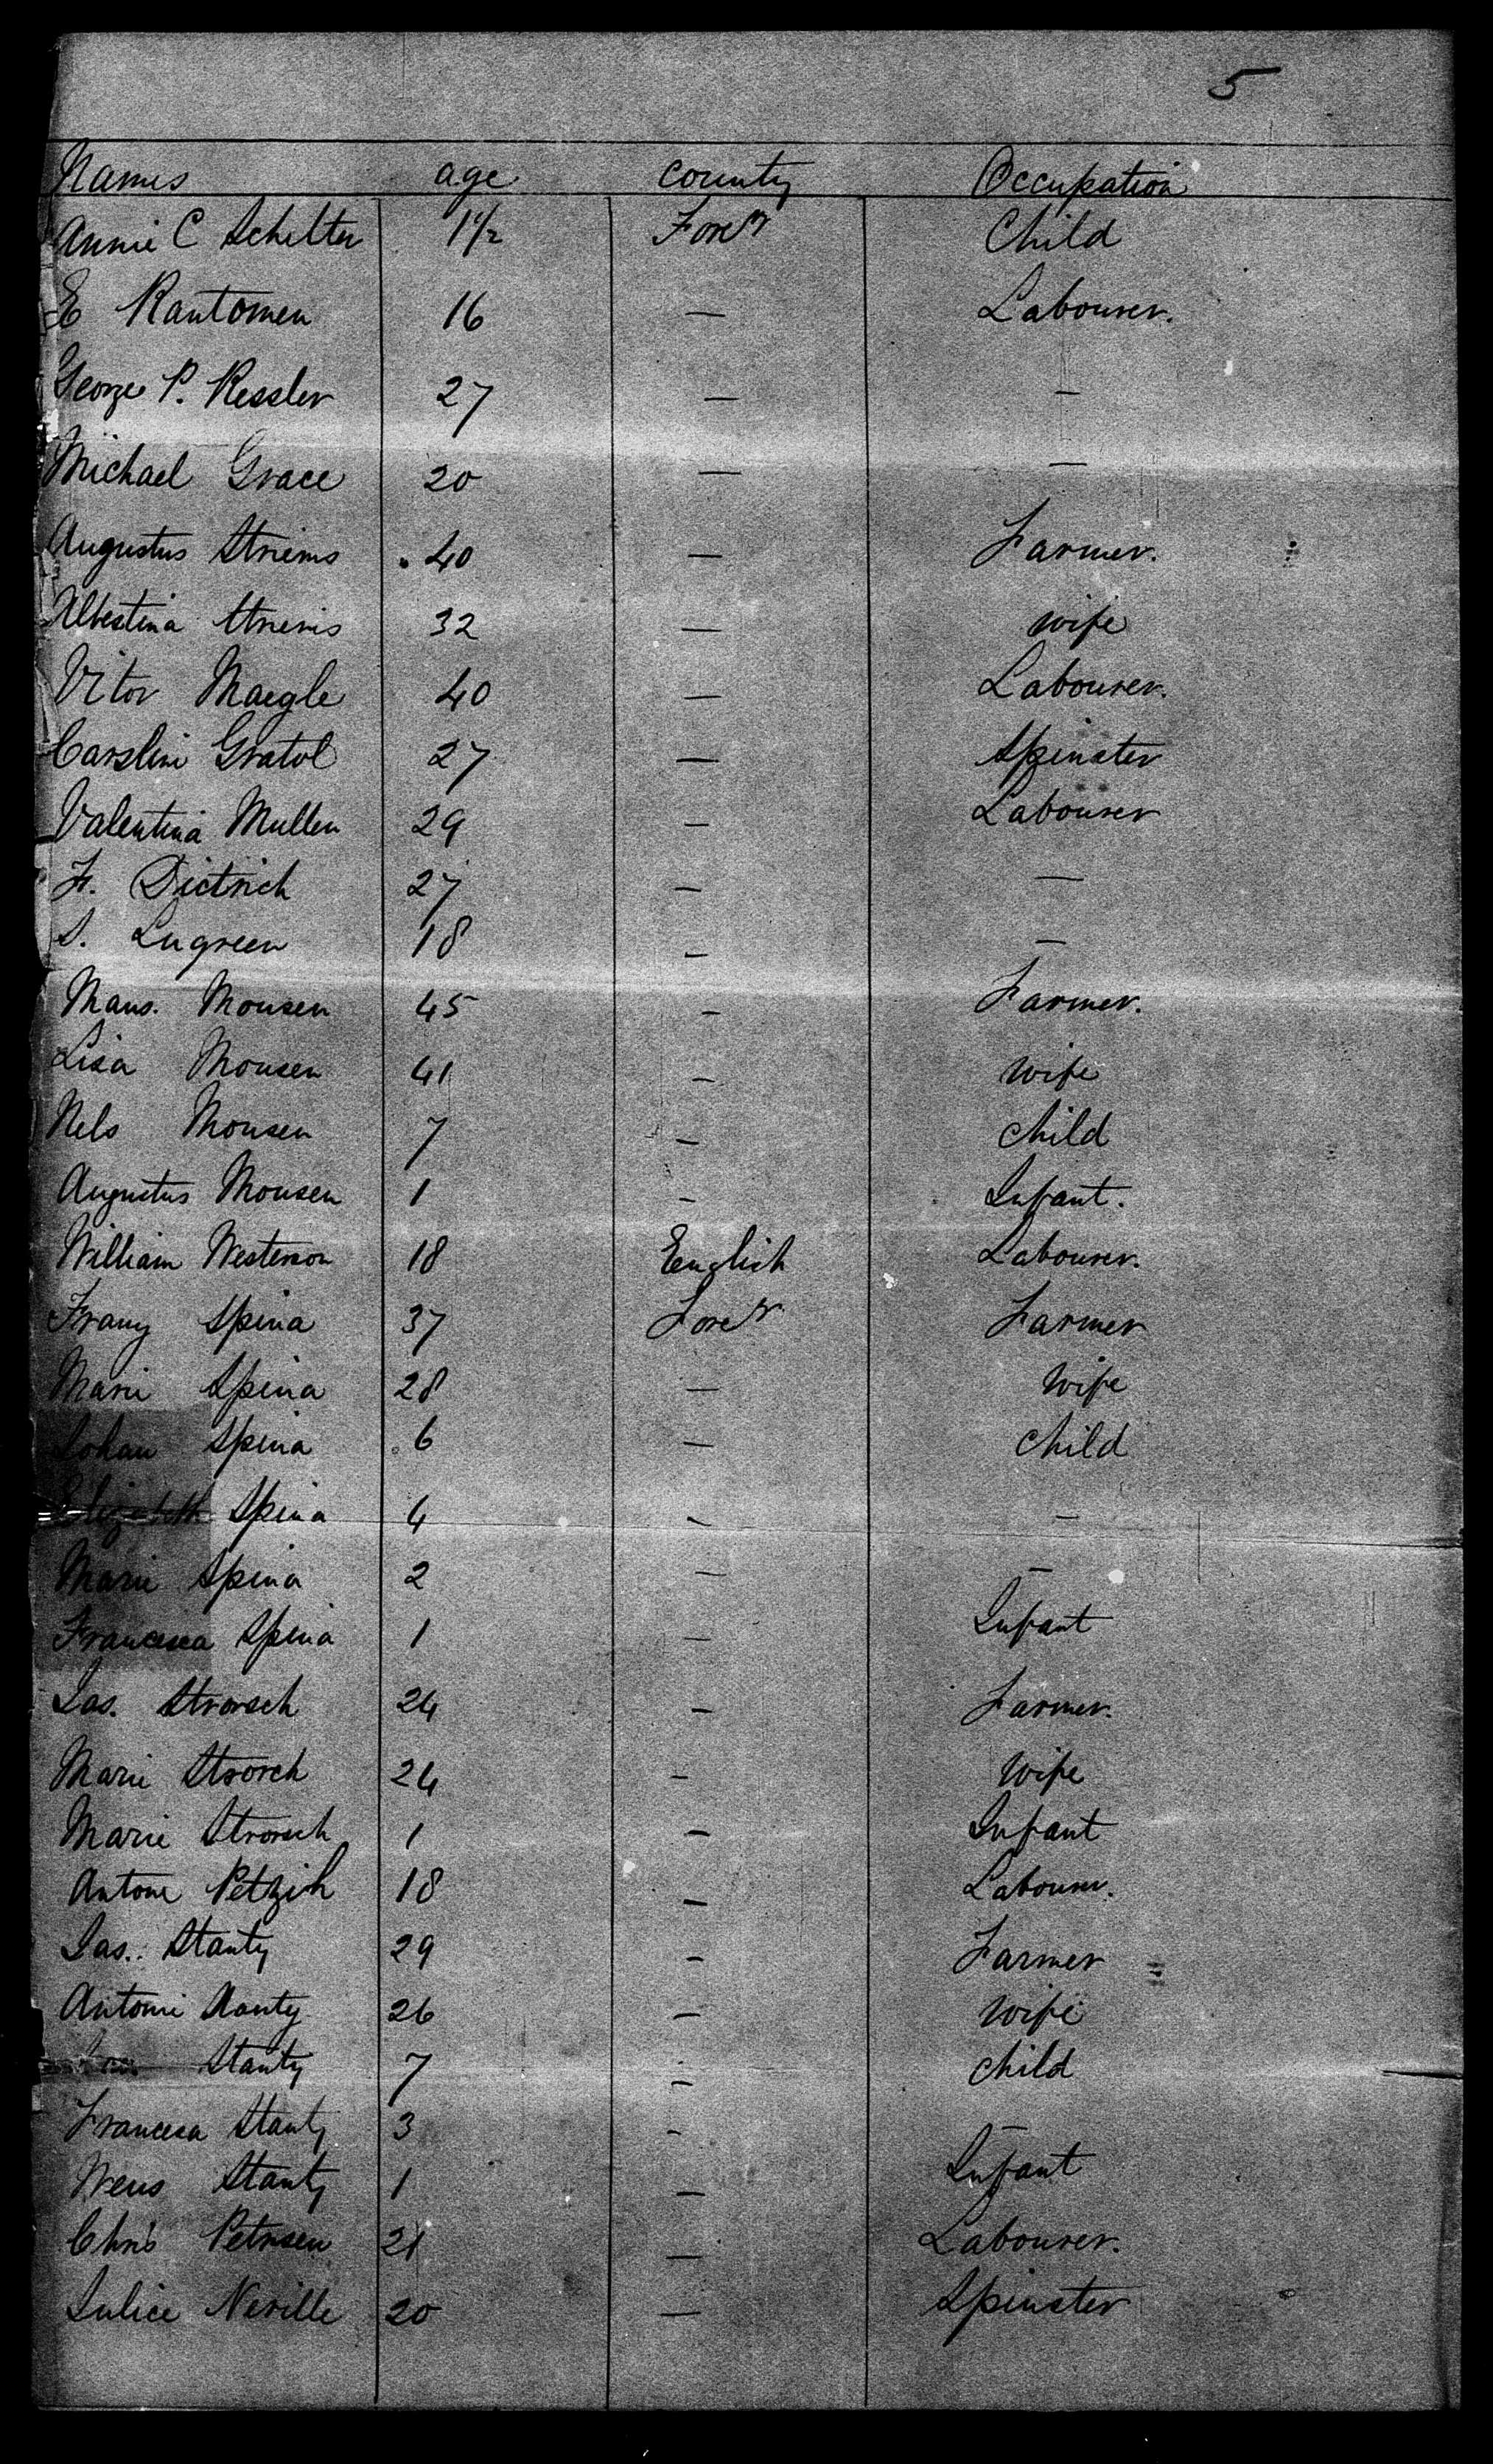 5
Names age county Occupation
Annie C Schelter 1 1/2 Forer Child
E Rantomen 16 — Labourer.
George P. Ressler 27 — —
Michael Grace 20 — —
Augustus Striems 40 — Farmer.
Albestina Striems 32 — wife
Vitor Maegle 40 — Labourer.
Carslin Gratol 27 — Spinster
Valentina Mullen 29 — Labourer
F. Dietrich 27 — —
S. Lugreen 18 — —
Mans. Monsen 45 — Farmer.
Lisa Monsen 41 — wife
Nels Monsen 7 — child
Augustus Monsen 1 — Infant.
William Westerson 18 English Labourer.
Frany Spina 37 Forer Farmer
Marie Spina 28 — Wife
Johan Spina 6 — child
Elizabeth Spina 4 — —
Marie Spina 2 — —
Francisca Spina 1 — Infant
Jas. Strorsch 24 — Farmer.
Marie Strorsch 24 — Wife
Marie Strorsch 1 — Infant
Antone Petzih 18 — Labourer.
Jas. Stanty 29 — Farmer
Antoni Stanty 26 — wife
Stanty 7 — child
Francesa Stanty 3 — —
Wens Stanty 1 — Infant
Chris Petrsen 21 — Labourer.
Julice Neville 20 — Spinster